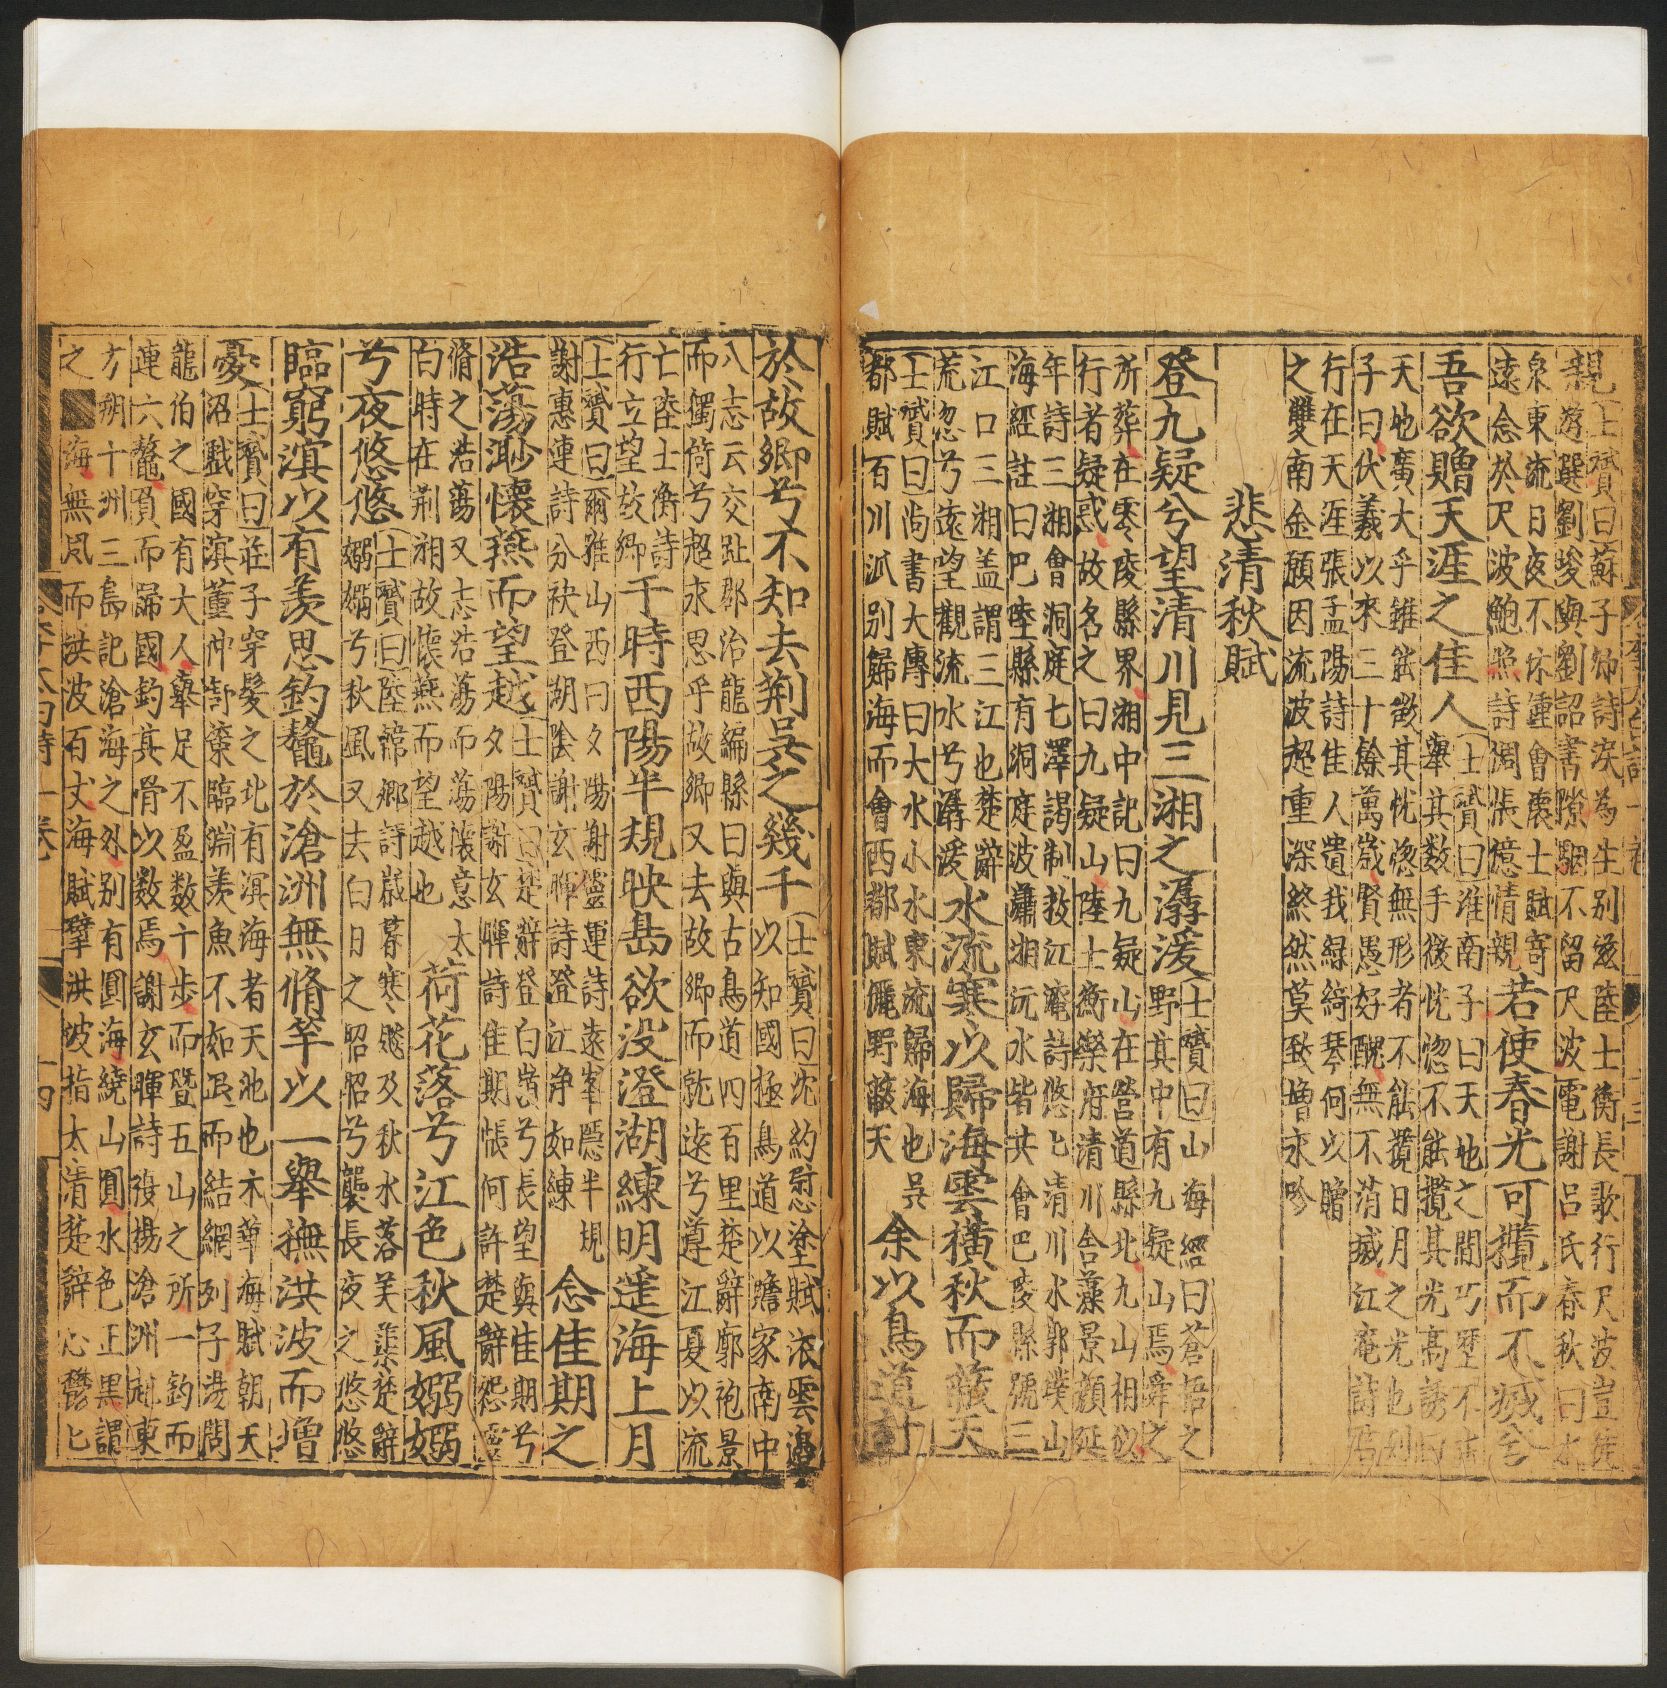 親
士贇曰蘇子卿詩淚為生别滋陸士衡長歌行尺波豈徒
旋劉峻與劉詔書隙駟不留尺波電謝吕氏春秋曰水
泉東流日夜不休鍾會懷士賦寄
遠念於尺波鮑照詩潤漲憶情親
若使春光可攬而不滅兮
吾欲贈天涯之佳人
士贇曰淮南子曰天地之間巧歷不
舉其数手後恍惚不能攬其光高誘曰
天地廣大乎雖能微其恍惚無形者不能攬日月之光也列
子曰伏羲以來三十餘萬歲賢愚好醜無不消滅江庵詩
行在天涯張孟陽詩佳人遺我緑綺琴何以贈
之雙南金願因流波超重深終然莫致增永吟
悲清秋賦
登九疑兮望清川見三湘之潺湲
士贇曰山海經曰蒼梧之
野其中有九疑山焉舜之
所葬在零陵縣界湘中記曰九疑山在營道縣北九山相似
行者疑惑故名之曰九疑山陸士衡樂府清川含藻景顔延
年詩三湘會洞庭七澤謁制救江庵詩悠匕清川水郭璞山
海經註曰巴陸縣有洞庭波瀟湘沅水皆共會巴陵縣號三
江口三湘盖謂三江也楚辭
荒忽兮遠望觀流水兮潺湲
水流寒以歸海雲横秋而蔽天
士贇曰尚書大傳曰大水小水東流歸海也吳
都賦百川派别歸海而會西都賦儷野蔽天
余以鳥道計
於故鄉兮不知去荆吳之幾千
士贇曰沈約愍塗賦依雲邊
以知國極鳥道以瞻家南中
八志云交趾郡治龍編縣曰與古鳥道四百里楚辭廓袍景
而獨倚兮超永思乎故鄉又去故鄉而就遠兮遵江夏以流
亡陸士衡詩
行立望故鄉
于時西陽半規映島欲没澄湖練明遥海上月
士贇曰爾雅山西曰夕陽謝靈運詩遠峯隱半規
謝惠連詩分袂登湖陰謝玄暉詩澄江净如練
念佳期之
浩蕩渺懷燕而望越
士贇曰楚辭登白薠兮長望與佳期兮
夕陽謝玄暉詩佳期悵何許楚辭怨靈
脩之浩蕩又志浩蕩而蕩懷意太
白時在荆湘故懷燕而望越也
荷花落兮江色秋風嫋嫋
兮夜悠悠
士贇曰陸韓鄉詩歲暮寒飇及秋水落芙蕖楚辭
嫋嫋兮秋風又去白日之昭昭兮襲長夜之悠悠
臨窮溟以有羨思釣鼇於滄洲無脩竿以一舉撫洪波而增
憂
士贇曰莊子穿髮之北有溟海者天池也木華海賦朝天
沼戲穿溟董仲舒策臨淵羨魚不如退而結網列子湯問
龍伯之國有大人舉足不盈数十步而暨五山之所一釣而
連六鼇負而歸國釣其骨以数焉謝玄暉詩復揚滄洲趣東
方朔十洲三島記滄海之外别有圓海繞山圓水色正黒謂
之海無風而洪波百丈海賦擊洪波指太清楚辭心鬱匕